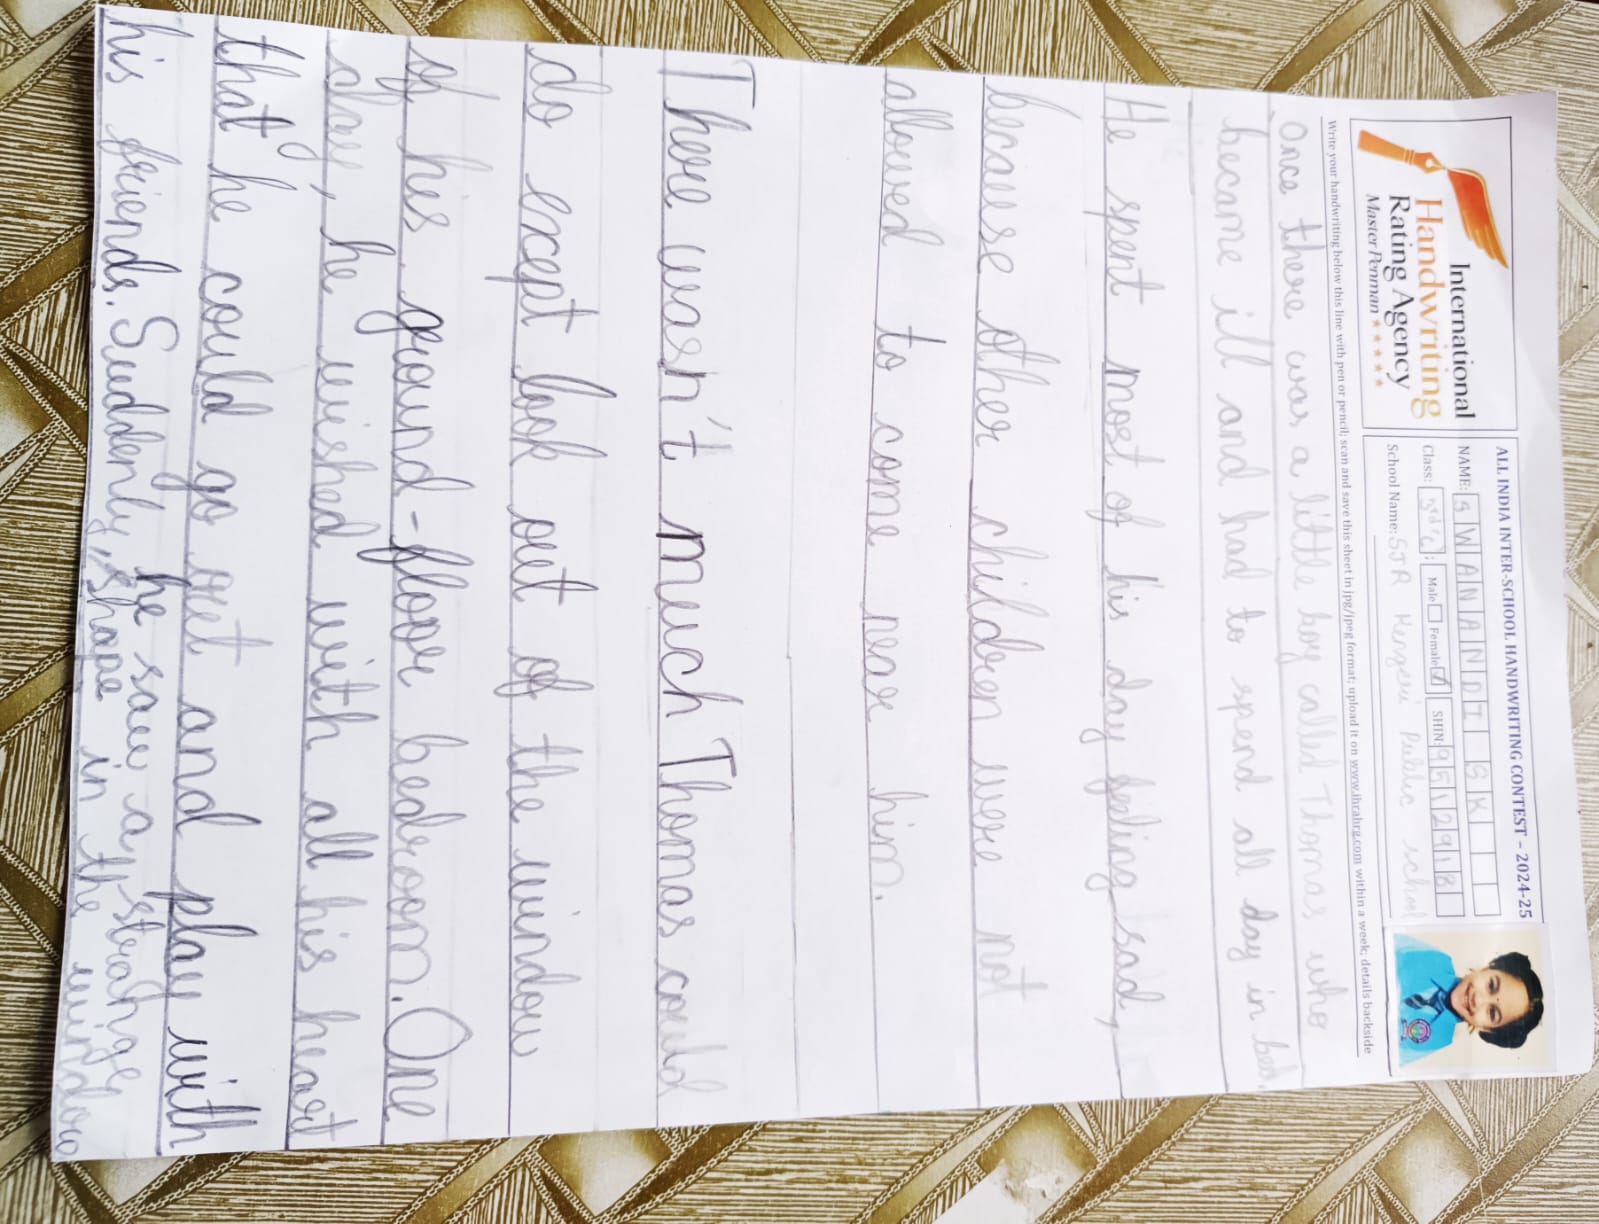 International
Handwriting
Rating Agency
Master Penman ★★★★★★
ALL INDIA INTER-SCHOOL HANDWRITING CONTEST – 2024-25
NAME: SWANANDI SK
Class: 3rd c Male Female ✓ SHIN: 95129181
School Name: SJR Kengeri Public school
Write your handwriting below this line with pen or pencil; scan and save this sheet in jpg/jpeg format; upload it on www.ihrahrg.com within a week; details backside
Once there was a little boy called Thomas who
became ill and had to spend all day in bed.
He spent most of his day feeling sad,
because other children were not
allowed to come near him.
There wasn't much Thomas could
do except look out of the window
of his ground-floor bedroom. One
day, he wished with all his heart
that he could go out and play with
his friends. Suddenly, he saw a strange
shape in the window